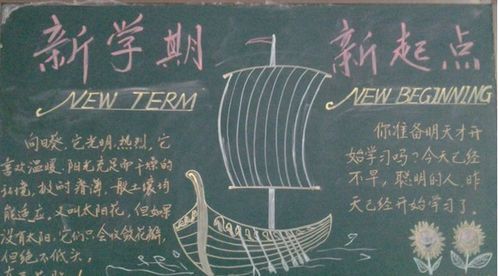 新学期
新起点
NEW TERM
NEW BEGINNING
向日葵，它光明，热烈，它
喜欢温暖，阳光充足而干燥的
环境，极耐瘠薄，一般土壤均
能适应，又叫太阳花，但如果
没有太阳，它们只会收敛花瓣，
但绝不低头，
你准备明天才开
始学习吗？今天已经
不早，聪明的人，昨
天已经开始学习了。